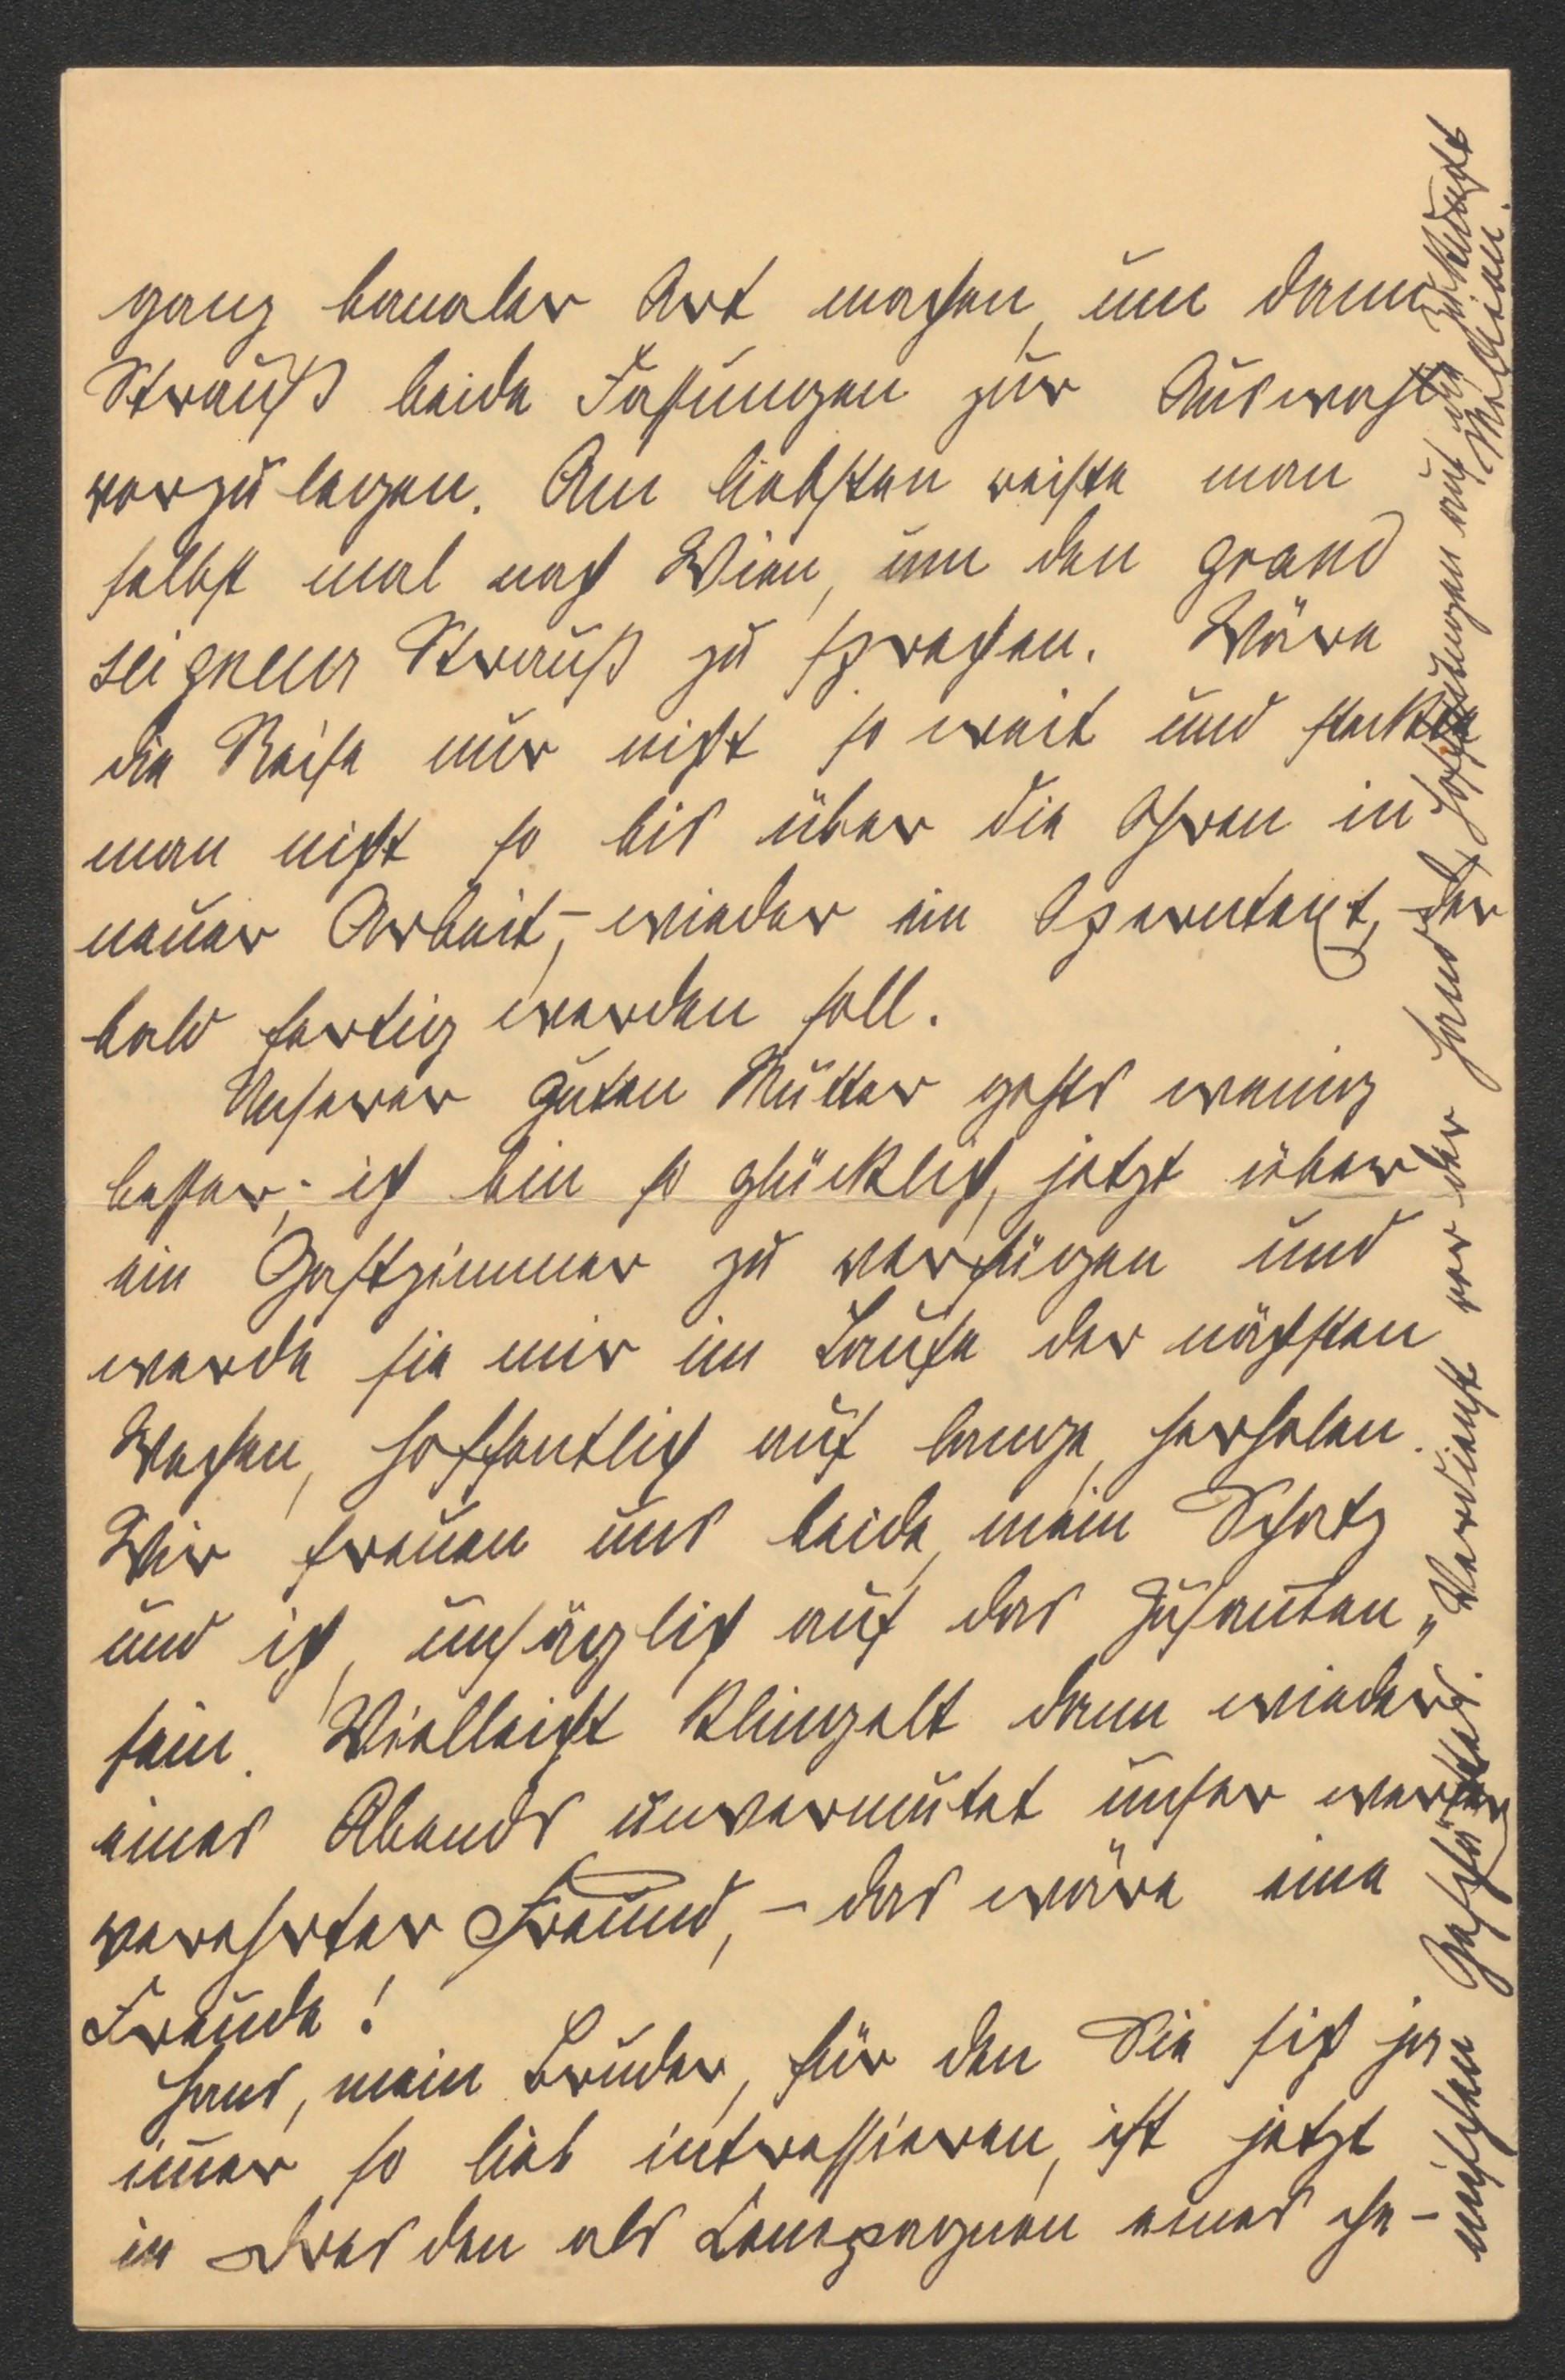 ganz banaler Art machen, um dann
Strauß beide Fassungen zur Auswahl
vorzulegen. Am liebsten reiste man
selbst mal nach Wien, um den grand
seigneur Strauß zu sprechen. Wäre
die Reise nur nicht so weit und steckte
man nicht so bis über die Ohren in
neuer Arbeit, – wieder ein Operntext, der
bald fertig werden soll.
Unserer guten Mutter gehts wenig
besser; ich bin so glücklich, jetzt über
ein Gastzimmer zu verfügen und
werde sie mir im Laufe der nächsten
Wochen, hoffentlich auf lange, herholen.
Wir freuen uns beide, mein Schatz
und ich, unsäglich auf das Zusam̄en
sein. Vielleicht klingelt dann wieder
eines Abends unvermutet unser werter
verehrter Freund, – das wäre eine
Freude!
Hans, mein Bruder, für den Sie sich ja
im̄er so lieb intressieren, ist jetzt
in Dresden als Compagnon eines che-
mischen Geschäftes.
„Verdienst vor der Hand, der Hoffnungen auf die Zukunft